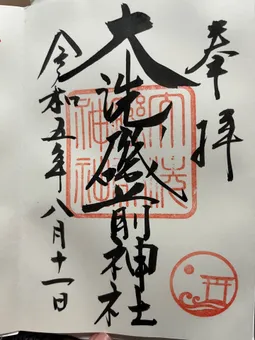 奉拝
大洗磯前神社
令和五年八月十一日